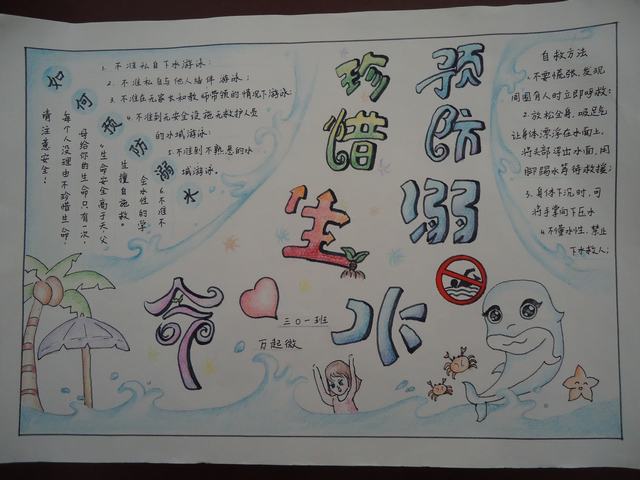 珍惜生命
预防溺水
如何预防溺水
1. 不准私自下水游泳;
2. 不准私自与他人结伴游泳;
3. 不准在无家长和教师带领的情况下游泳;
4. 不准到无安全设施无救护人员
的水域游泳;
5. 不准到不熟悉的水
域游泳。
6. 不准不
会水性的学
生擅自施救。
"生命安全高于天,父
母给你的生命只有一次,
每个人没理由不珍惜生命,
请注意安全!
自救方法
1. 不要慌张,发现
周围有人时立即呼救;
2. 放松全身,
让身体漂浮在水面上,
将头部浮出水面,用
脚踢水等待救援;
3. 身体下沉时,可
将手掌向下压水
4. 不懂水性,禁止
下水救人;
三0一班
万起微